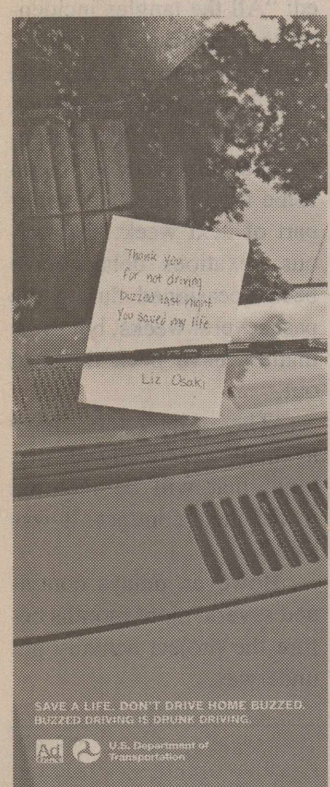 Thank you
for not driving
buzzed last night
You saved my life
Liz Osaki
SAVE A LIFE. DON'T DRIVE HOME BUZZED.
BUZZED DRIVING IS DRUNK DRIVING.
Ad
Council
U.S. Department of
Transportation